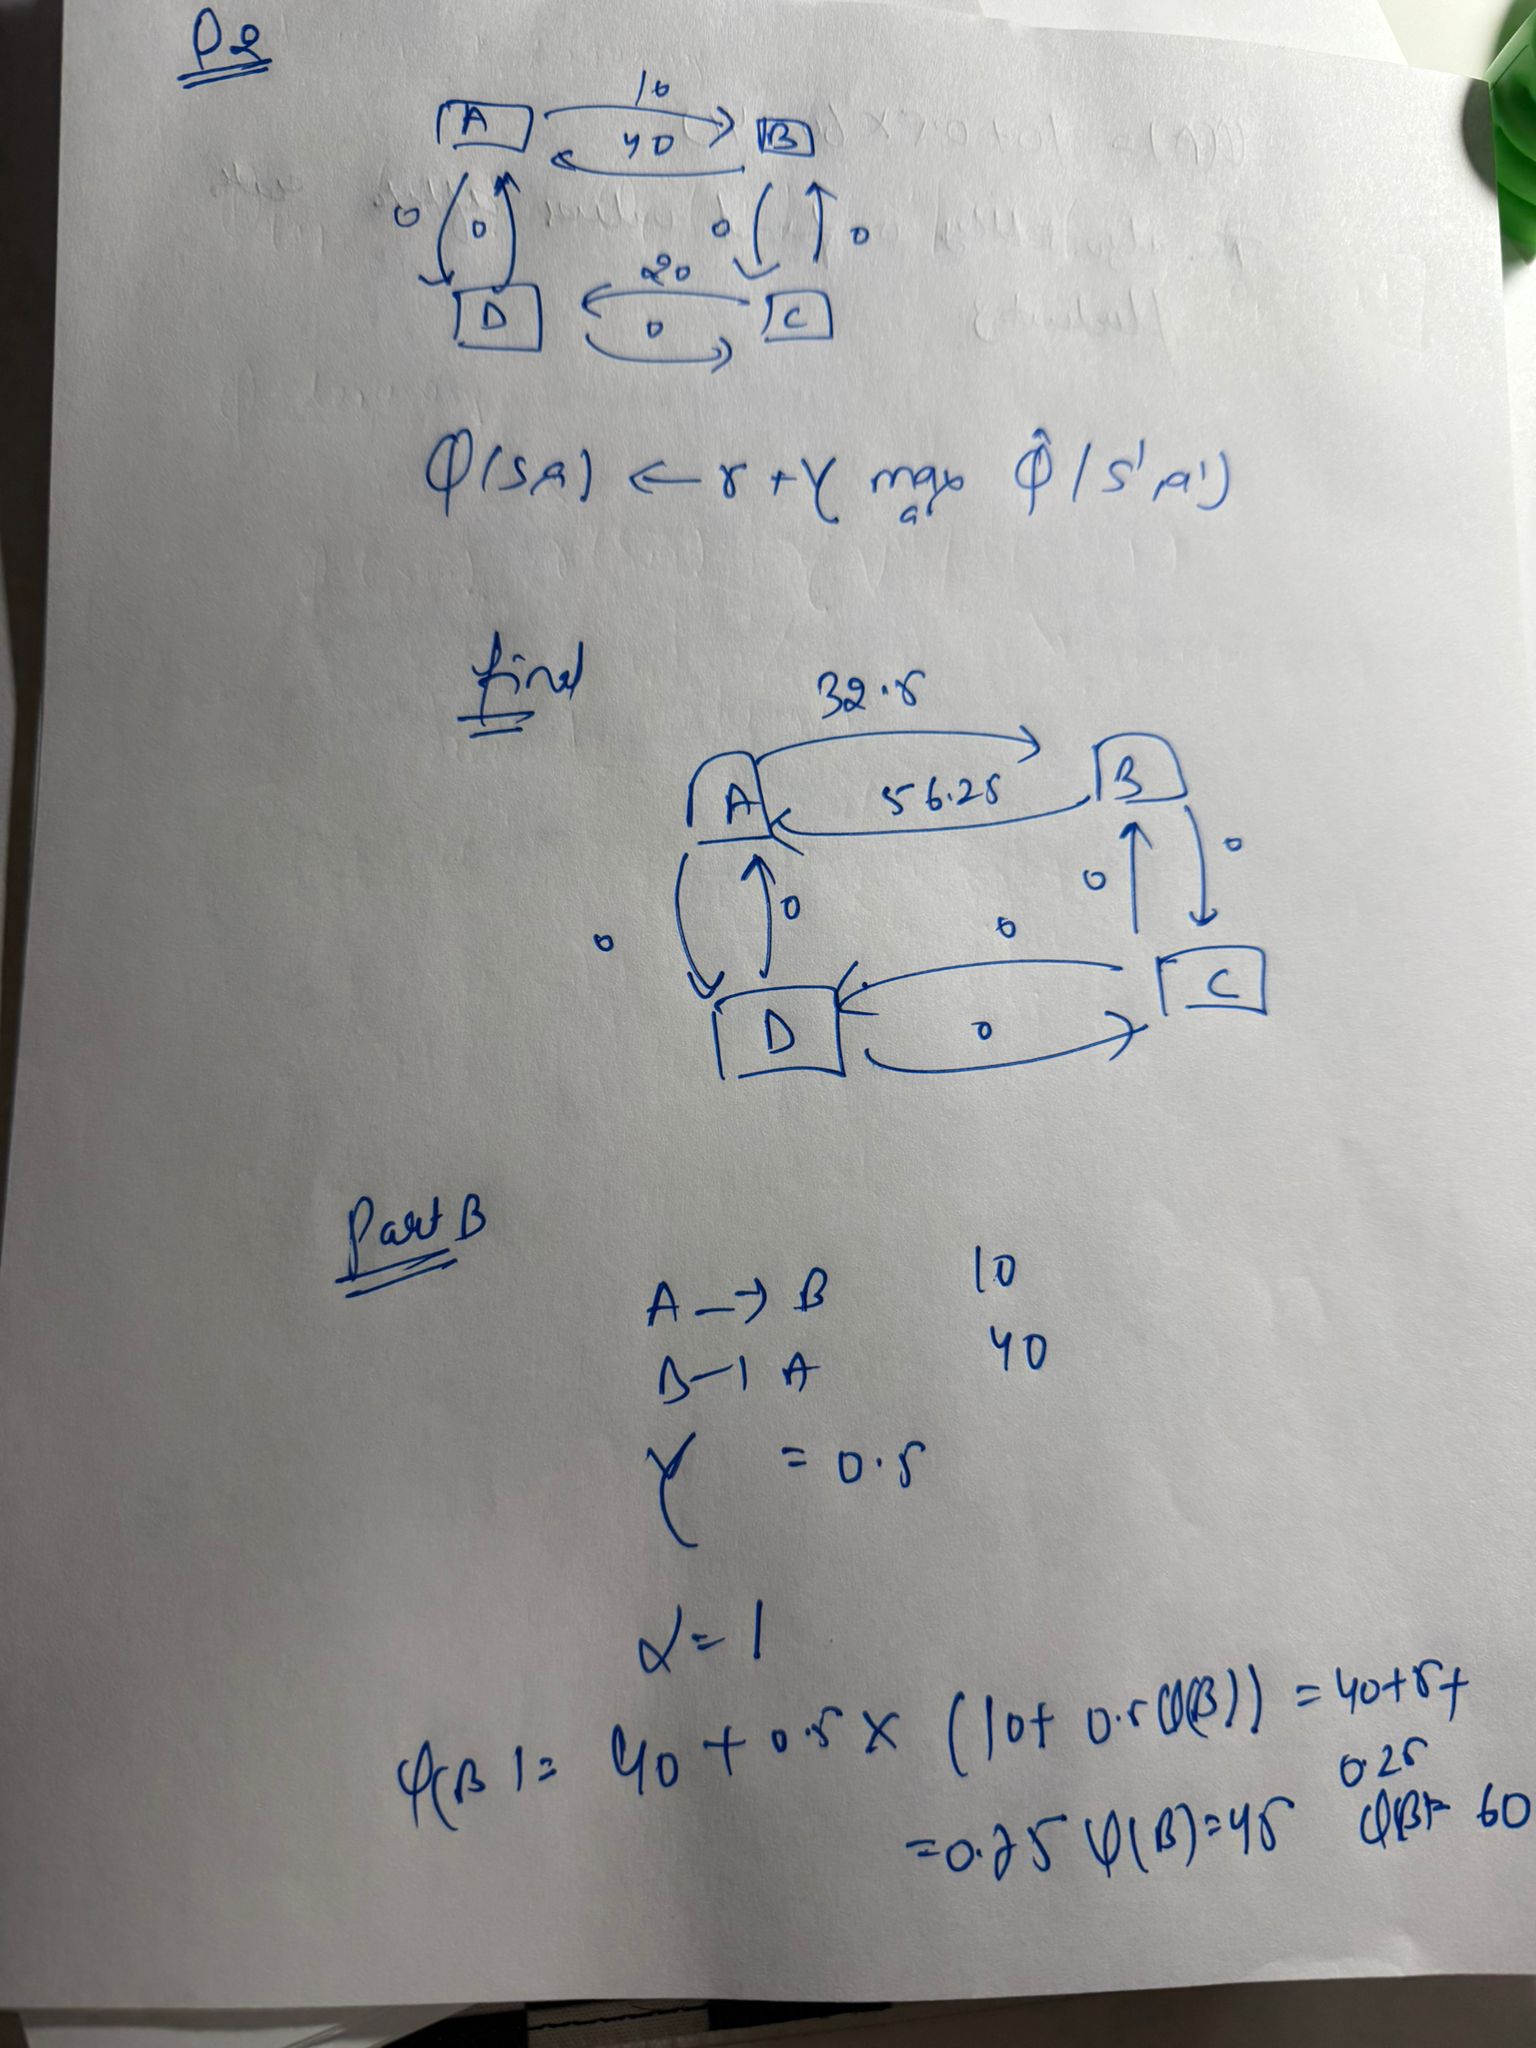 P2
10
A
40
B
0
0
0
0
20
D
0
C
Q(s,a) ← r + γ max Q̂(s',a')
a'
final
32.5
A
56.25
B
0
0
0
0
0
D
0
C
Part B
A → B 10
B → A 40
γ = 0.5
α = 1
Q(B) = 40 + 0.5 × (10 + 0.5 Q(B)) = 40 + 5 +
0.25
= 0.75 Q(B) = 45 Q(B) = 60